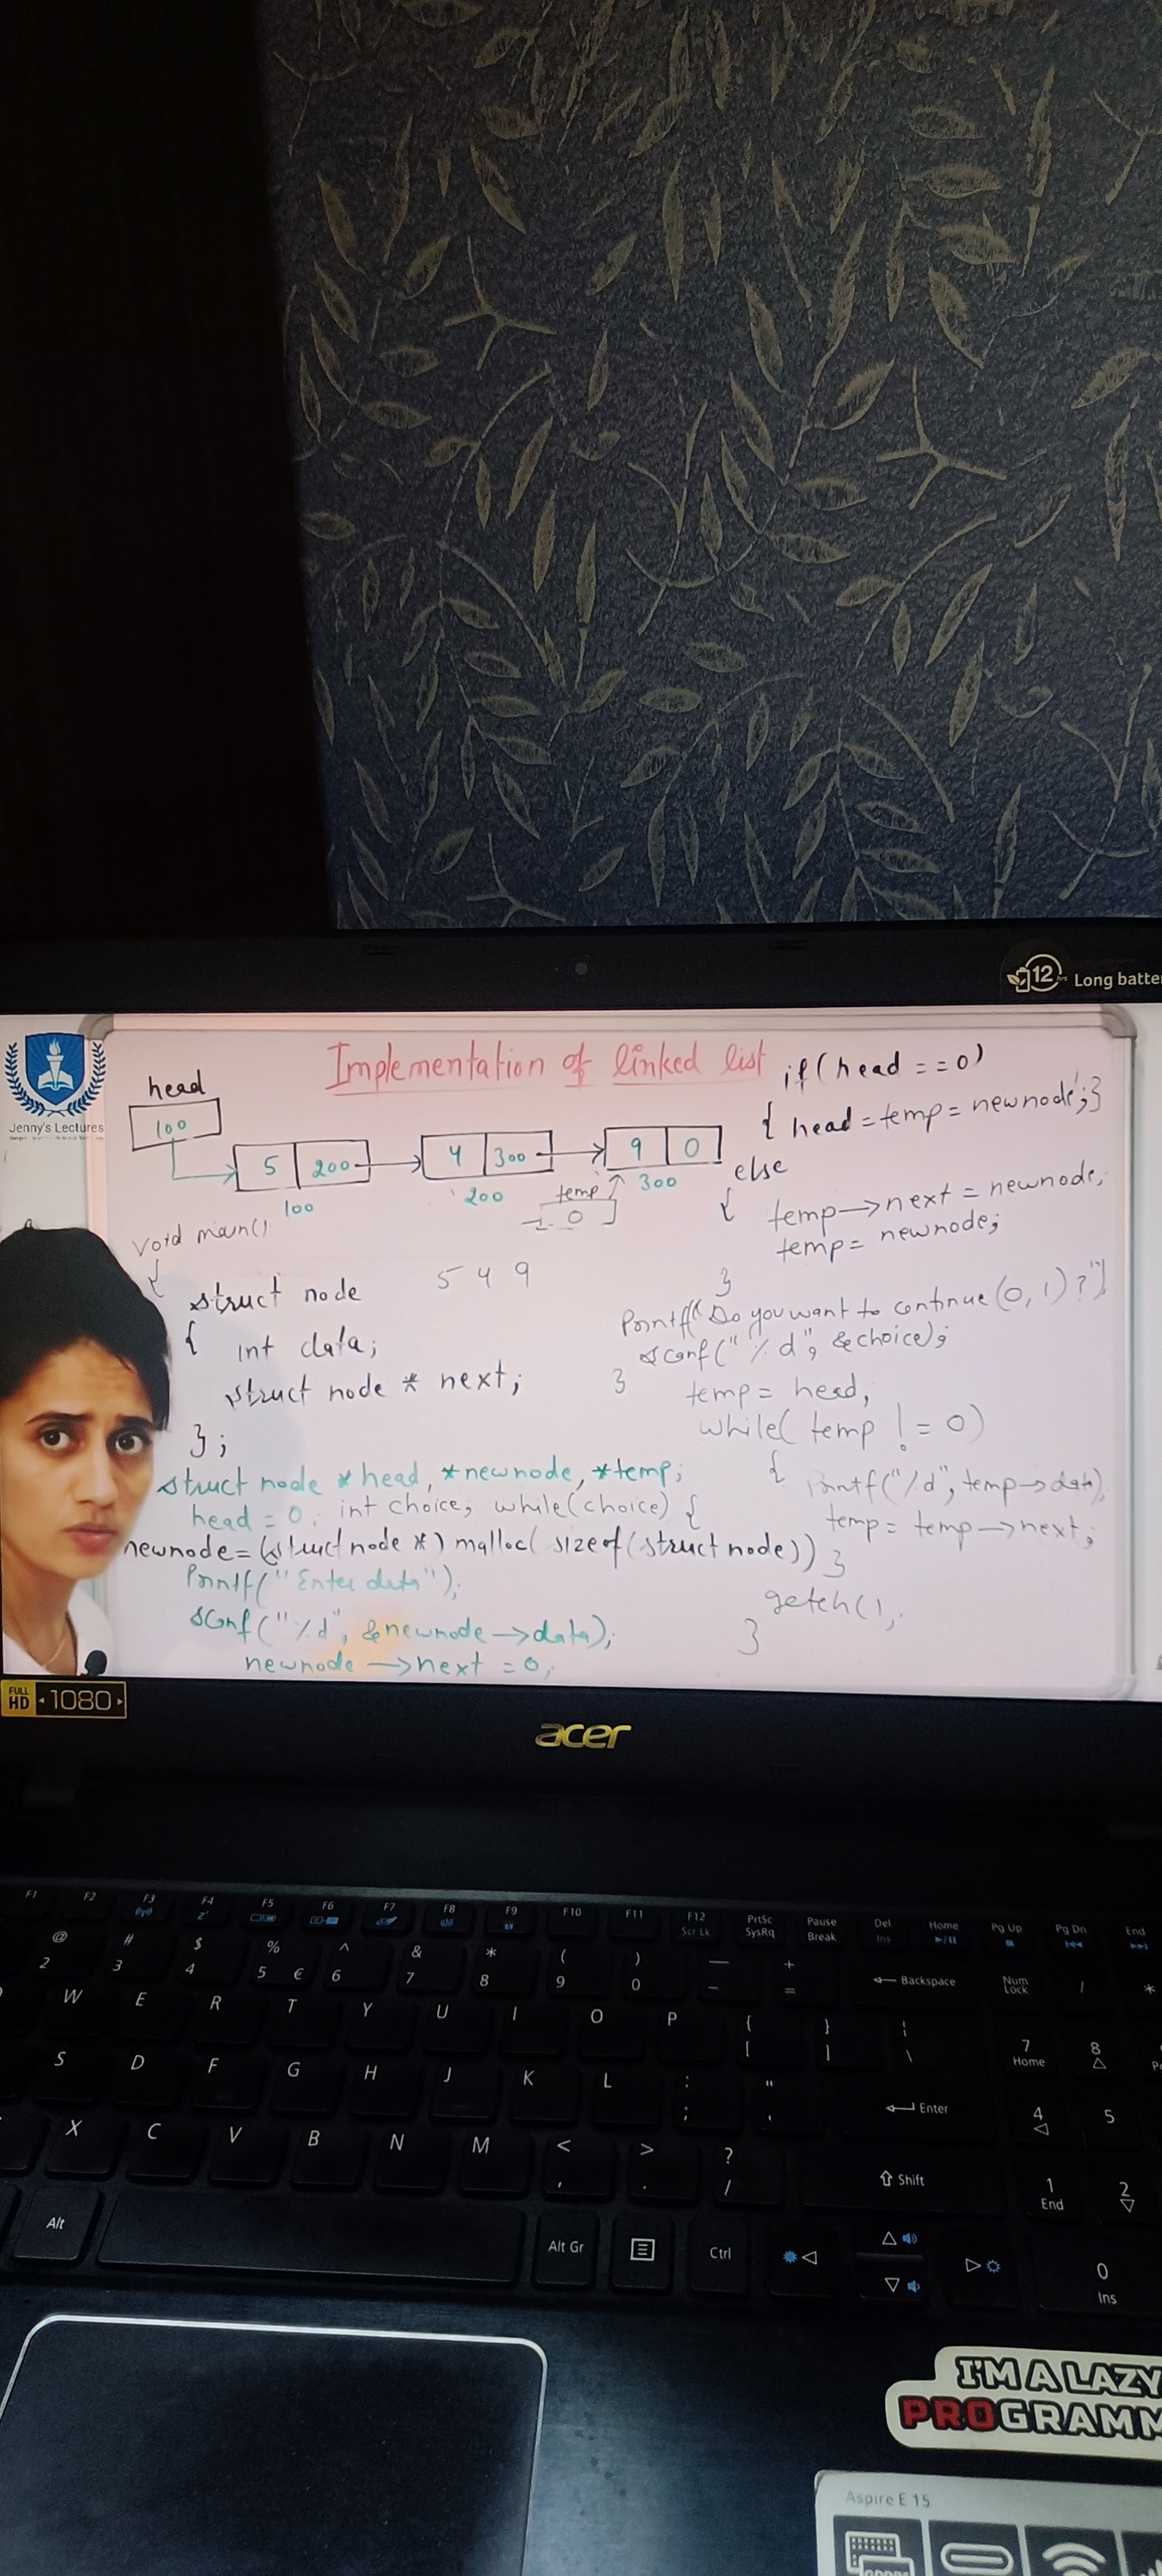 12 hrs Long batte
Jenny's Lectures
Implementation of linked list
head
100
5 200
100
4 300
200
9 0
300
temp
0
void main()
{
5 4 9
struct node
{ int data;
struct node * next;
};
struct node *head, *newnode, *temp;
head = 0; int choice, while(choice) {
newnode = (struct node *) malloc( sizeof(struct node))
Printf("Enter data");
scanf("%d", &newnode->data);
newnode ->next = 0;
if(head == 0)
{ head = temp = newnode; }
else
{ temp->next = newnode;
temp = newnode;
}
Printf("Do you want to continue (0, 1)?")
scanf("%d", &choice);
} temp = head,
while( temp != 0)
{ Printf("%d", temp->data);
temp = temp->next;
}
getch();
}
FULL HD 1080
acer
F1 F2 F3 F4 F5 F6 F7 F8 F9 F10 F11 F12 PrtSc Pause Del Home Pg Up Pg Dn End
Scr Lk SysRq Break Ins
@ # $ % ^ & * ( ) — +
2 3 4 5 € 6 7 8 9 0 - = Backspace Num Lock / *
W E R T Y U I O P { [ } ] | \ 7 Home 8
S D F G H J K L : ; " ' Enter 4 5
X C V B N M < , > . ? / Shift 1 End 2
Alt Alt Gr Ctrl 0 Ins
I'M A LAZY
PROGRAMM
Aspire E 15